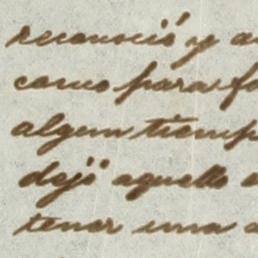 reconoció y
como para
algun tiemp
dejó aquello
tener una